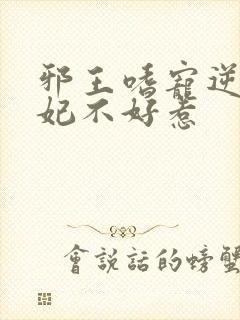 邪王嗜寵逆
妃不好惹
會說話的螃蟹